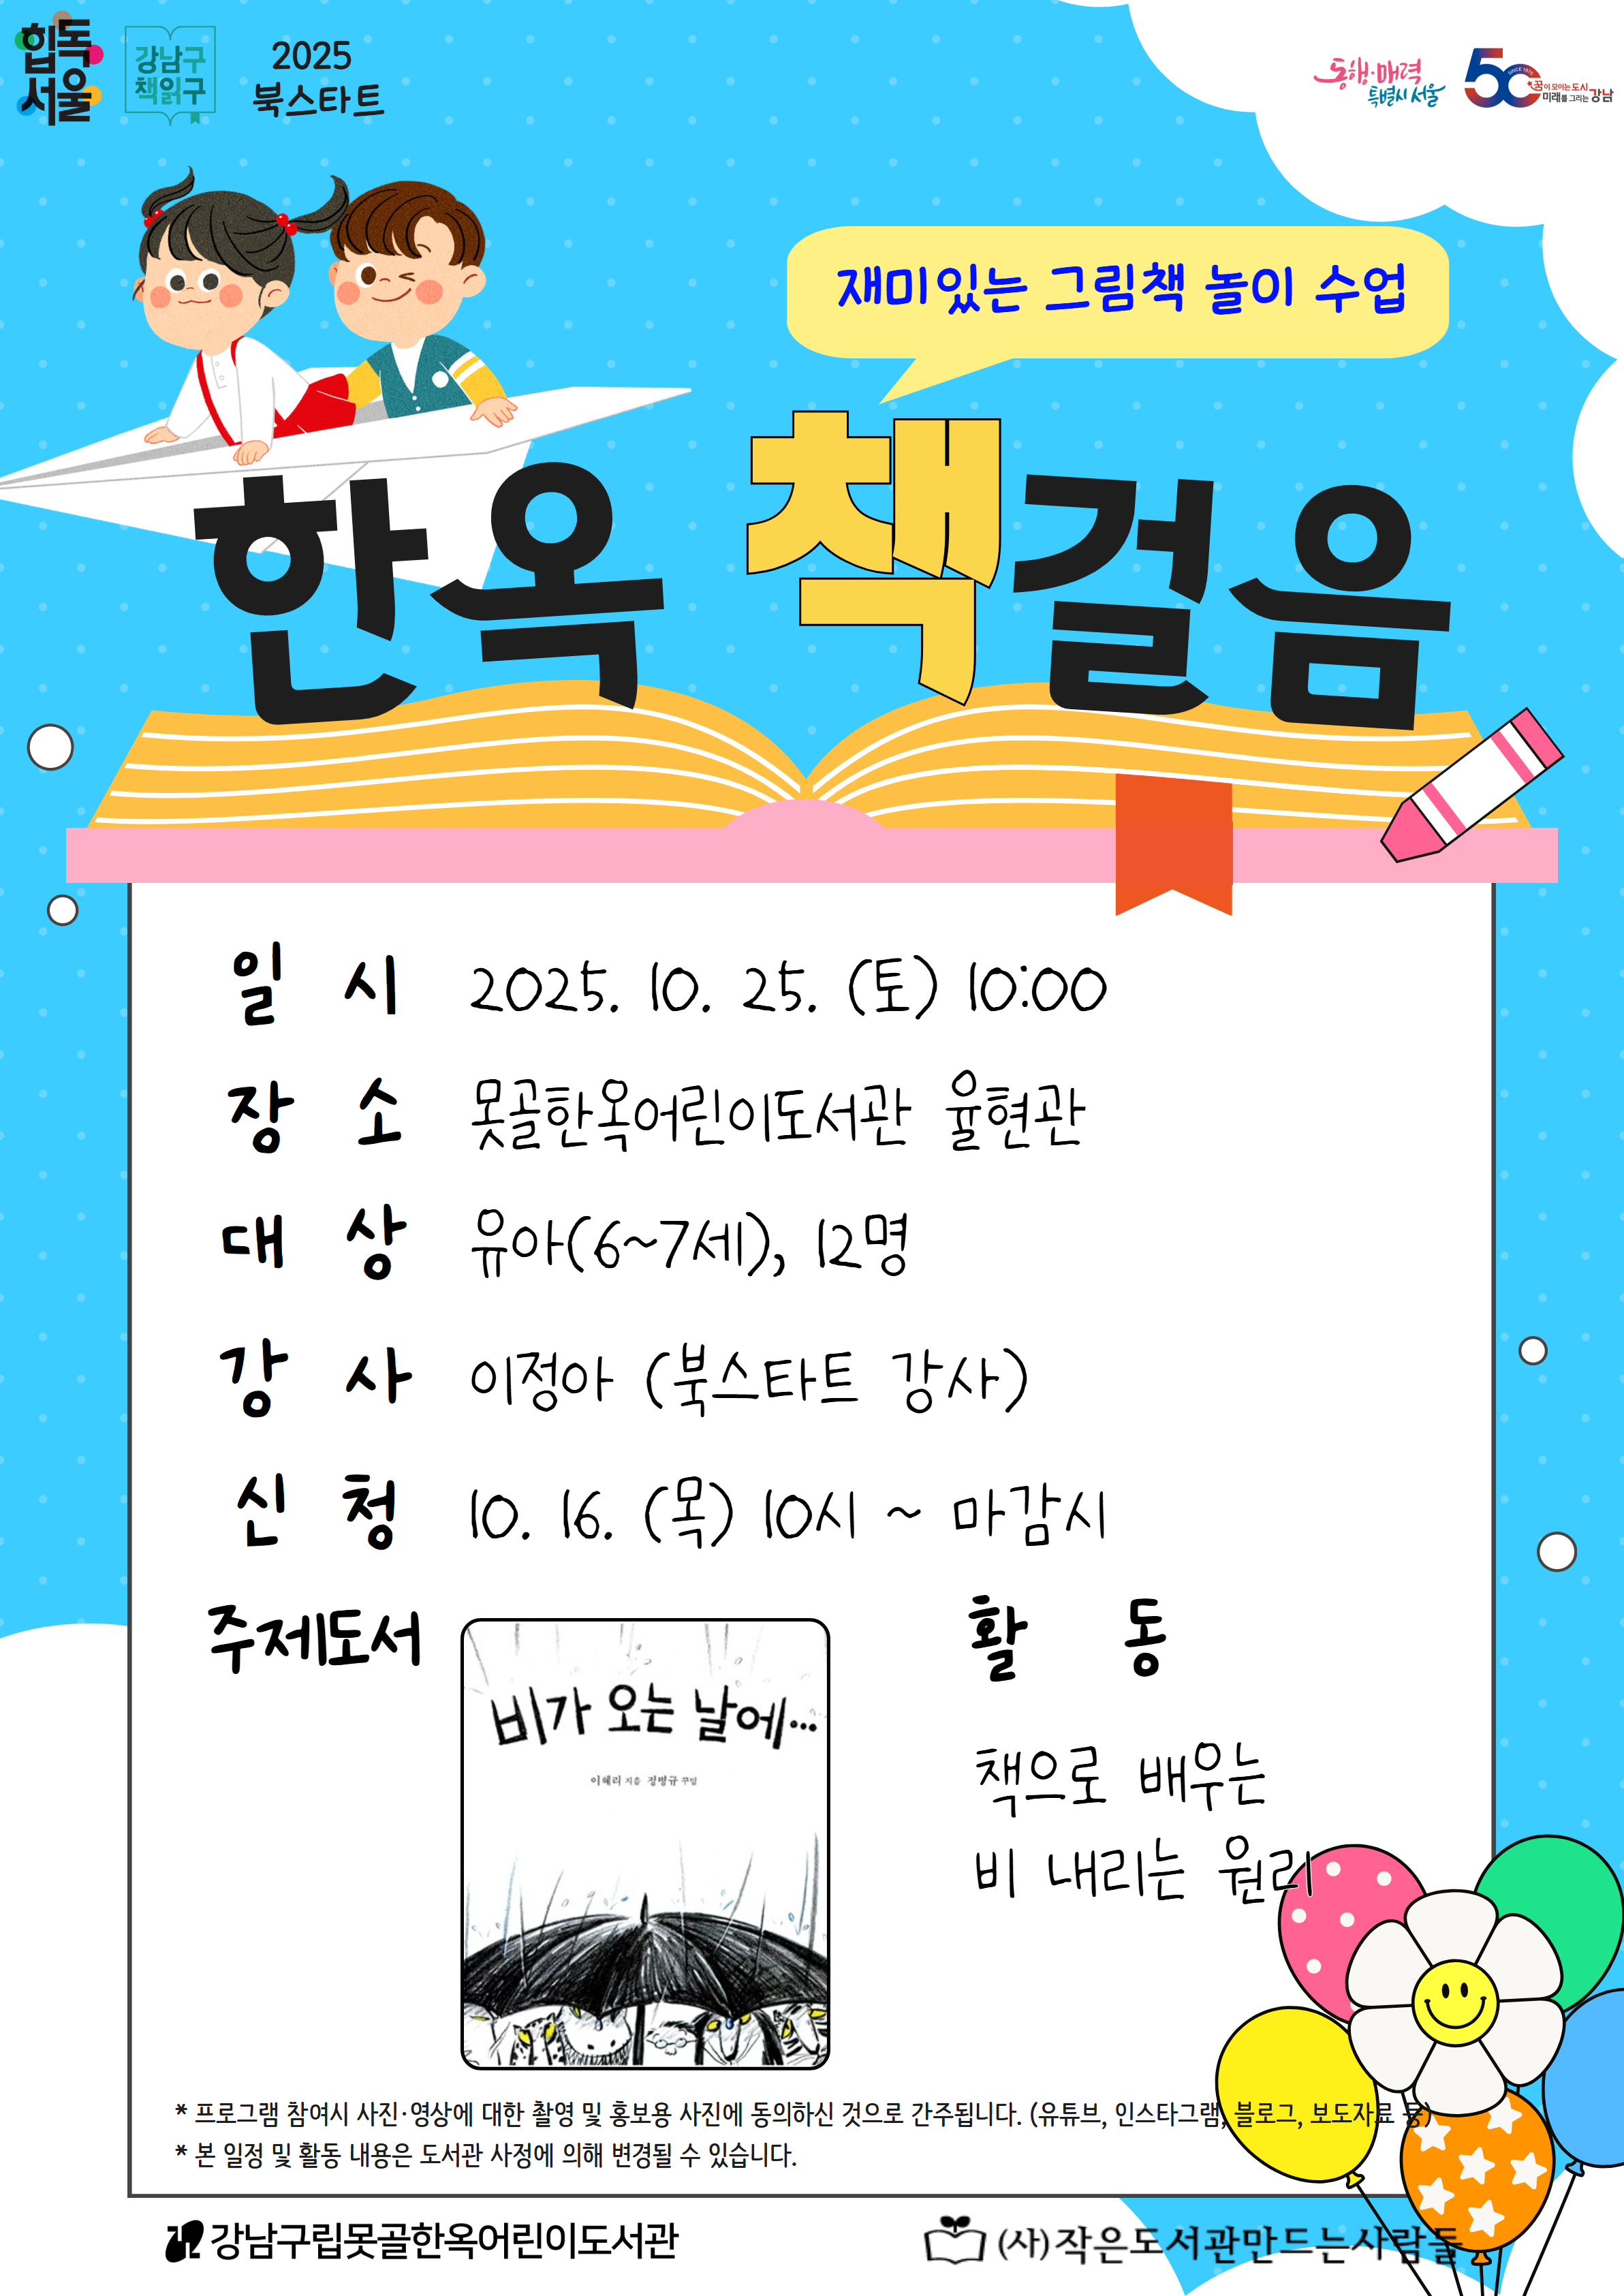 힙독
서울
강남구
책읽구
2025
북스타트
동행·매력
특별시 서울
50
SINCE 1975
꿈이 모이는 도시
미래를 그리는 강남
재미있는 그림책 놀이 수업
한옥 책걸음
일 시 2025. 10. 25. (토) 10:00
장 소 못골한옥어린이도서관 율현관
대 상 유아(6~7세), 12명
강 사 이정아 (북스타트 강사)
신 청 10. 16. (목) 10시 ~ 마감시
주제도서
비가 오는 날에...
이혜리 지음 정병규 꾸밈
활 동
책으로 배우는
비 내리는 원리
* 프로그램 참여시 사진·영상에 대한 촬영 및 홍보용 사진에 동의하신 것으로 간주됩니다. (유튜브, 인스타그램, 블로그, 보도자료 등)
* 본 일정 및 활동 내용은 도서관 사정에 의해 변경될 수 있습니다.
강남구립못골한옥어린이도서관
(사)작은도서관만드는사람들